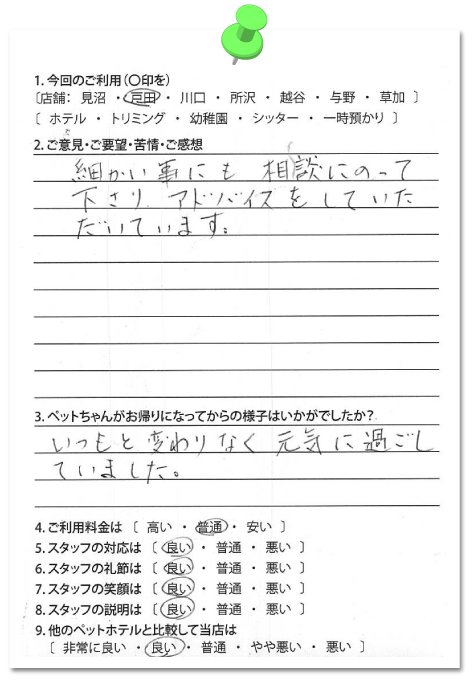 1. 今回のご利用（〇印を）
〔店舗： 見沼 ・ 戸田 ・ 川口 ・ 所沢 ・ 越谷 ・ 与野 ・ 草加 〕
〔 ホテル ・ トリミング ・ 幼稚園 ・ シッター ・ 一時預かり 〕
2. ご意見・ご要望・苦情・ご感想
細かい事にも 相談にのって
下さり、アドバイスをしていた
だいています。
3. ペットちゃんがお帰りになってからの様子はいかがでしたか？
いつもと変わりなく元気に過ごし
ていました。
4. ご利用料金は 〔 高い ・ 普通 ・ 安い 〕
5. スタッフの対応は 〔 良い ・ 普通 ・ 悪い 〕
6. スタッフの礼節は 〔 良い ・ 普通 ・ 悪い 〕
7. スタッフの笑顔は 〔 良い ・ 普通 ・ 悪い 〕
8. スタッフの説明は 〔 良い ・ 普通 ・ 悪い 〕
9. 他のペットホテルと比較して当店は
〔 非常に良い ・ 良い ・ 普通 ・ やや悪い ・ 悪い 〕